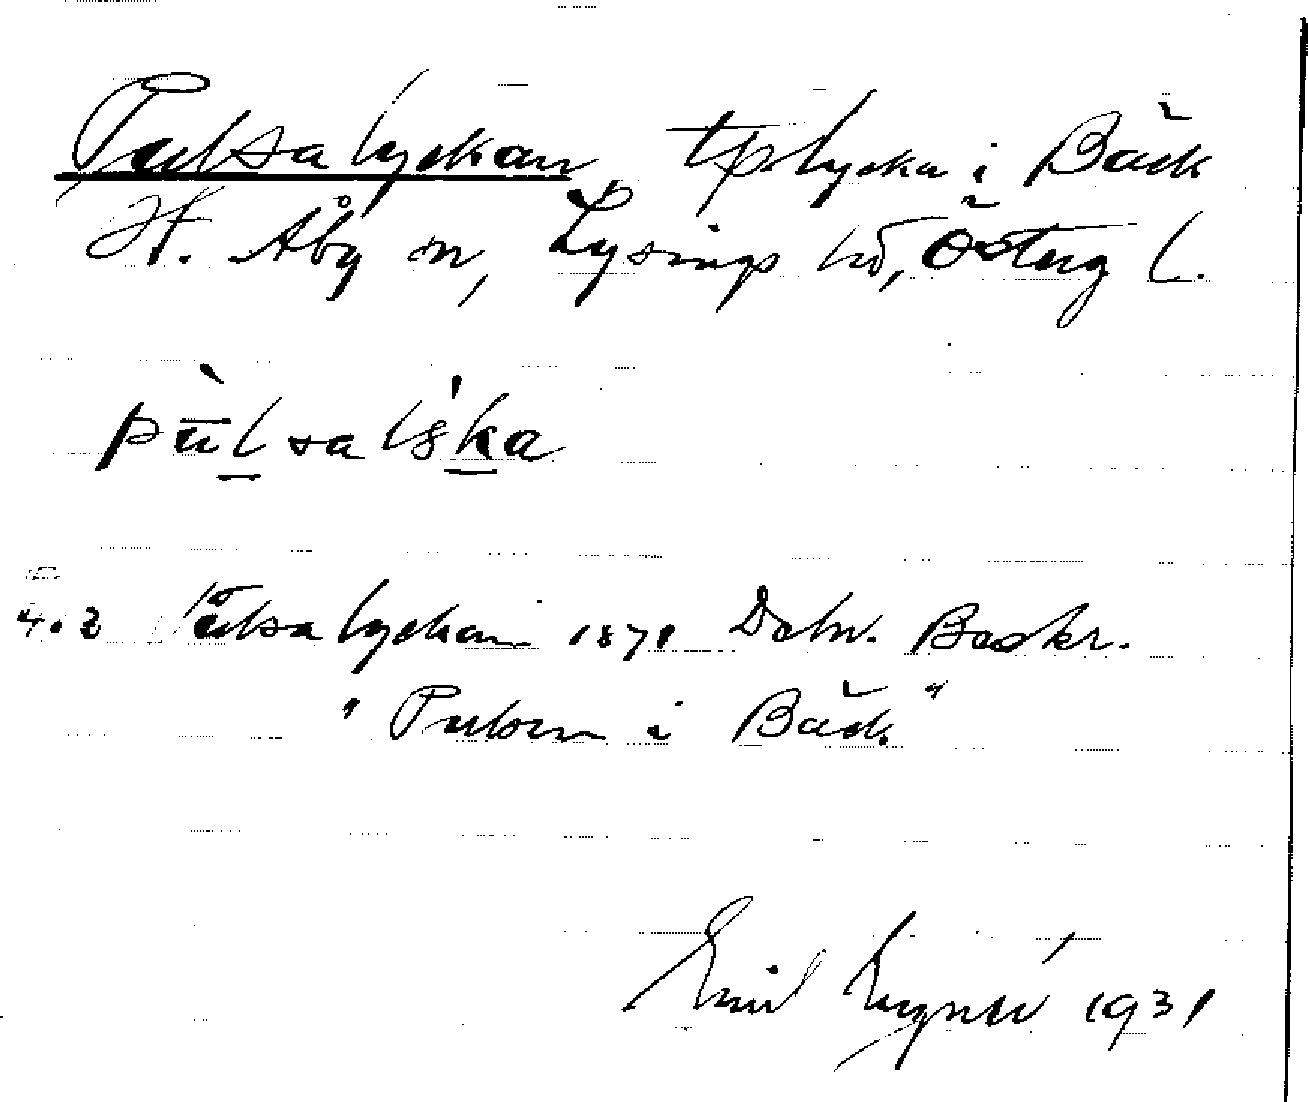 Pulsalyckan tplycka i Bäck
H. Åby sn, Lysings hd, Österg l.
pu̇̄lsalyka
Pulsalyckan 1871 Dahn. Beskr.
"Pulsen i Bäck"
Emil 1931